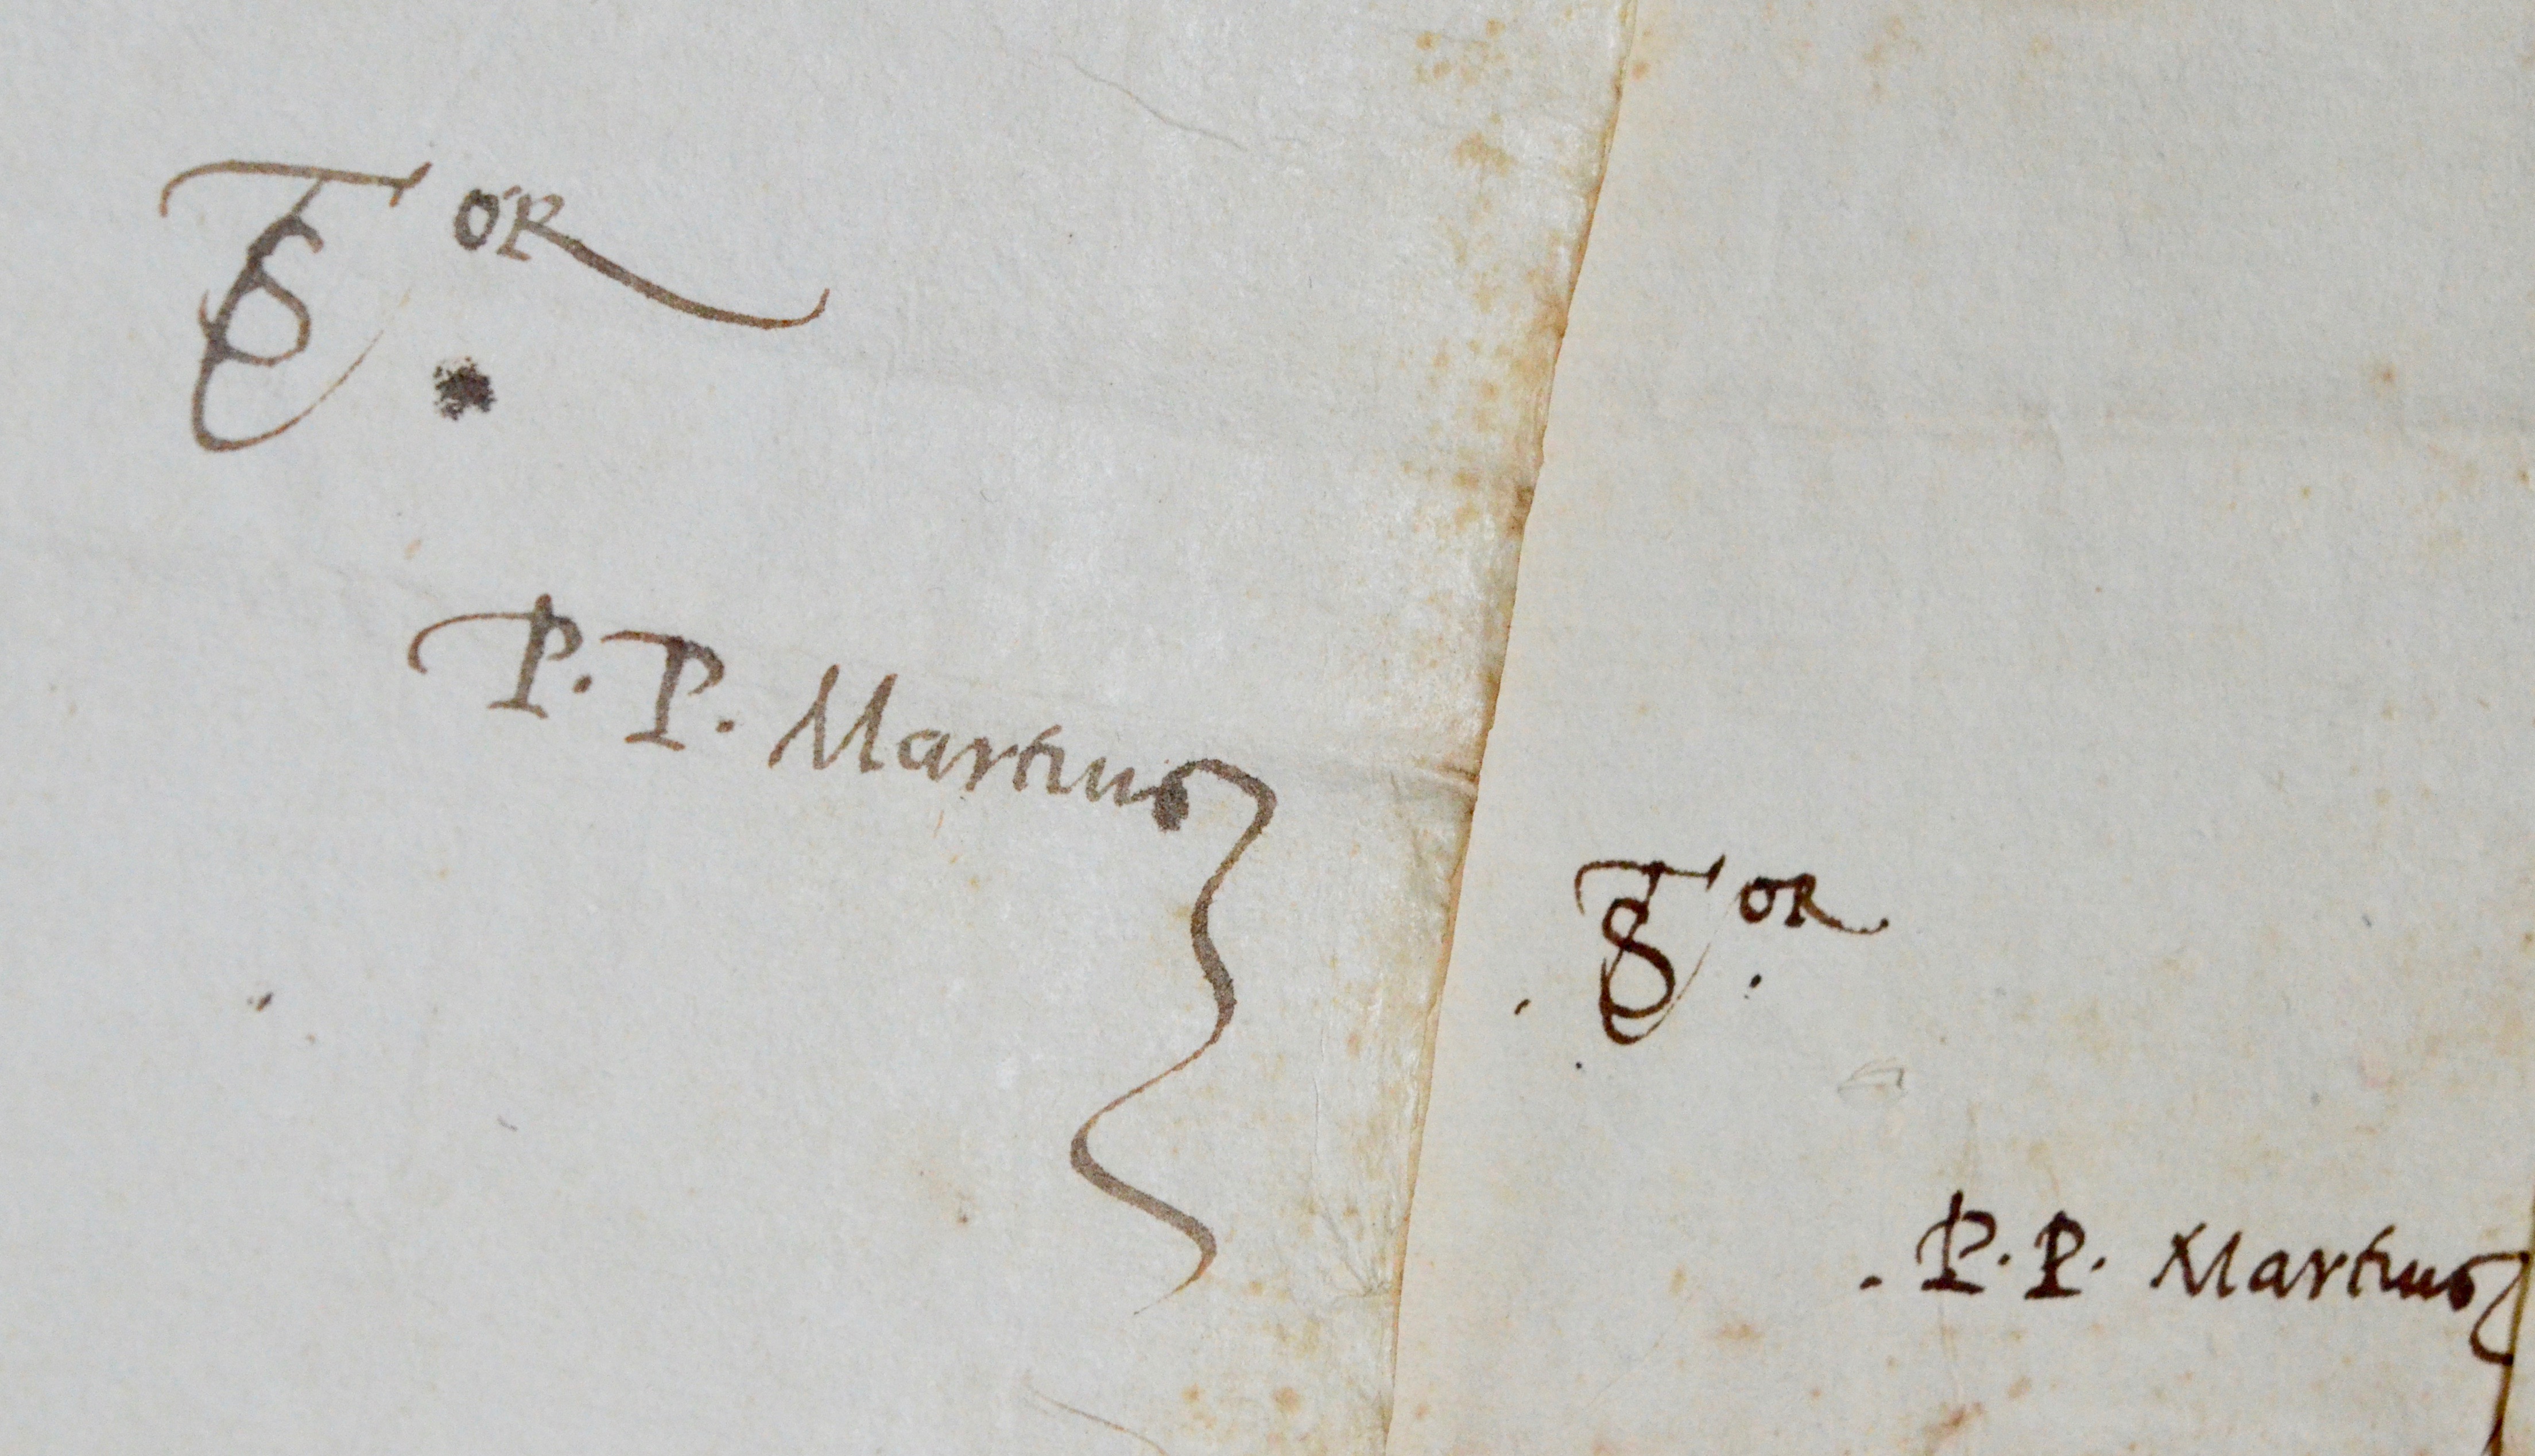 STOR
P. P. Martius
STOR
. P. P. Martius